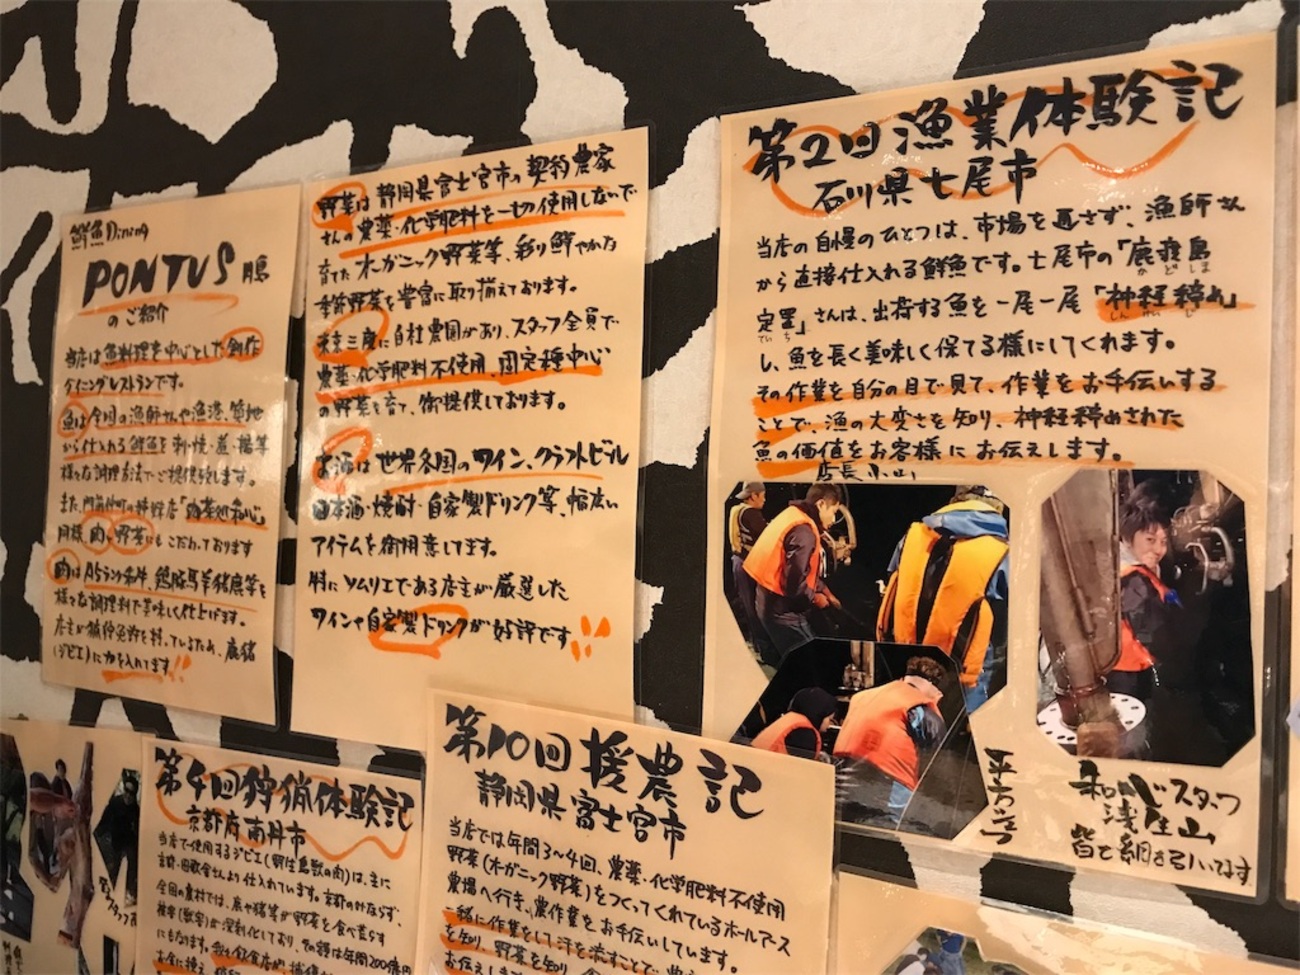 鮮魚Dining
PONTUS 月島
のご紹介
当店は魚料理を中心とした創作
ダイニングレストランです。
魚は全国の漁師さんや漁港、築地
から仕入れる鮮魚を刺・焼・蒸・揚等
様々な調理方法でご提供致します。
また、門前仲町の姉妹店
同様、肉、野菜にもこだわっております
肉はA5ランク和牛、鶏豚馬羊猪鹿等を
様々な調理科で美味しく仕上げます。
店主が狩猟免許を持っているため、鹿猪
(ジビエ)に力を入れてます!!
野菜は静岡県富士宮市の契約農家
さんの農薬・化学肥料を一切使用しないで
育てたオーガニック野菜等、彩り鮮やかな
季節野菜を豊富に取り揃えております。
東京三鷹に自社農園があり、スタッフ全員で
農薬・化学肥料不使用、固定種中心
の野菜を育て、御提供しております。
お酒は世界各国のワイン、クラフトビール
日本酒・焼酎・自家製ドリンク等、幅広い
アイテムを御用意してます。
特にソムリエである店主が厳選した
ワインや自家製ドリンクが好評です!!
第2回漁業体験記
石川県七尾市
当店の自慢のひとつは、市場を通さず、漁師さん
から直接仕入れる鮮魚です。七尾市の「鹿渡島
かどしま
定置」さんは、出荷する魚を一尾一尾「神経締め」
ていち しんけいじ
し、魚を長く美味しく保てる様にしてくれます。
その作業を自分の目で見て、作業をお手伝いする
ことで、漁の大変さを知り、神経締めされた
魚の価値をお客様にお伝えします。
店長 小山
平方シェフ
和心スタッフ
浅生山
皆で網を引いてます
第4回狩猟体験記
京都府南丹市
当店で使用するジビエ(野生鳥獣の肉)は、主に
さんより仕入れています。京都のみならず、
全国の農村では、鹿や猪等が野菜を食べ荒らす
被害(獣害)が深刻化しており、その額は年間200億円
にもなります。
第10回援農記
静岡県富士宮市
当店では年間3~4回、農薬・化学肥料不使用
野菜(オーガニック野菜)をつくってくれているホールアース
農場へ行き、農作業をお手伝いしています。
一緒に作業をして汗を流すことで、
を知り、野菜を知り、
お伝えします